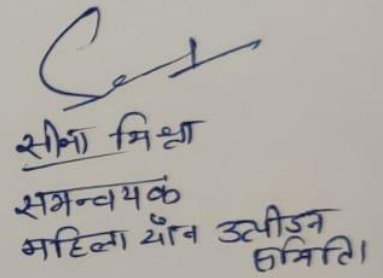 सीमा मिश्रा
समन्वयक
महिला यौन उत्पीड़न
समिति।